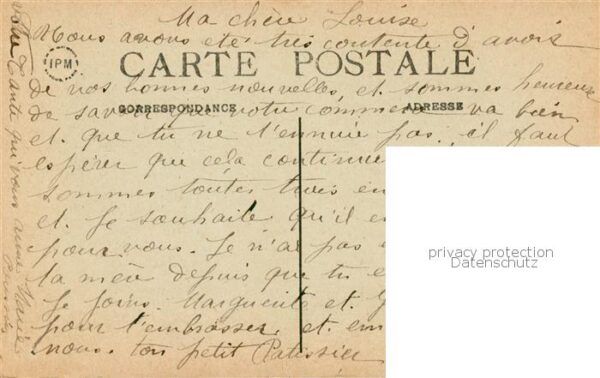 Ma chère Louise
Nous avons été très contente d'avoir
IPM
CARTE POSTALE
de vos bonnes nouvelles, et sommes heureux
CORRESPONDANCE
ADRESSE
de savoir que votre commerce va bien
et que tu ne t'ennuie pas il faut
espérer que cela continue
sommes toutes trois en
et Je souhaite qu'il e
pour vous. Je n'ai pas
ta mère depuis que tu e
Je joins Marguerite et G
pour t'embrasser et em
nous. ton petit Patissier
votre Tante qui vous aime Marie
privacy protection
Datenschutz